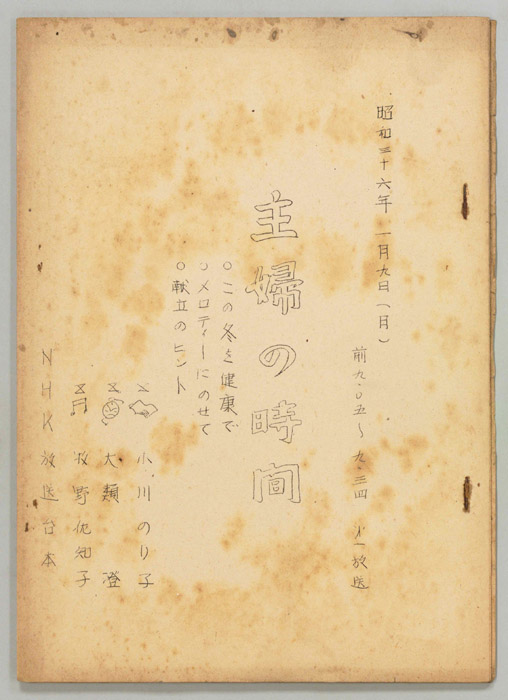 昭和二十六年 一月九日(月)
前九・〇五~九・三四 第一放送
主婦の時間
○この冬を健康で
○メロディーにのせて
○献立のヒント
小川のり子
大類 澄
牧野 知子
NHK放送台本